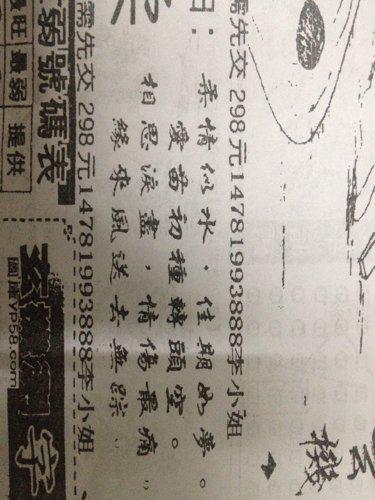 機
需先交 298 元14781993888李小姐
日:
柔情似水，佳期如夢。
愛苗初種轉頭空。
相思淚盡，情傷最痛"
緣來風送去無踪"
需先交 298 元14781993888李小姐
弱號碼表
旺 最弱 提供
字
圖庫yp58.com